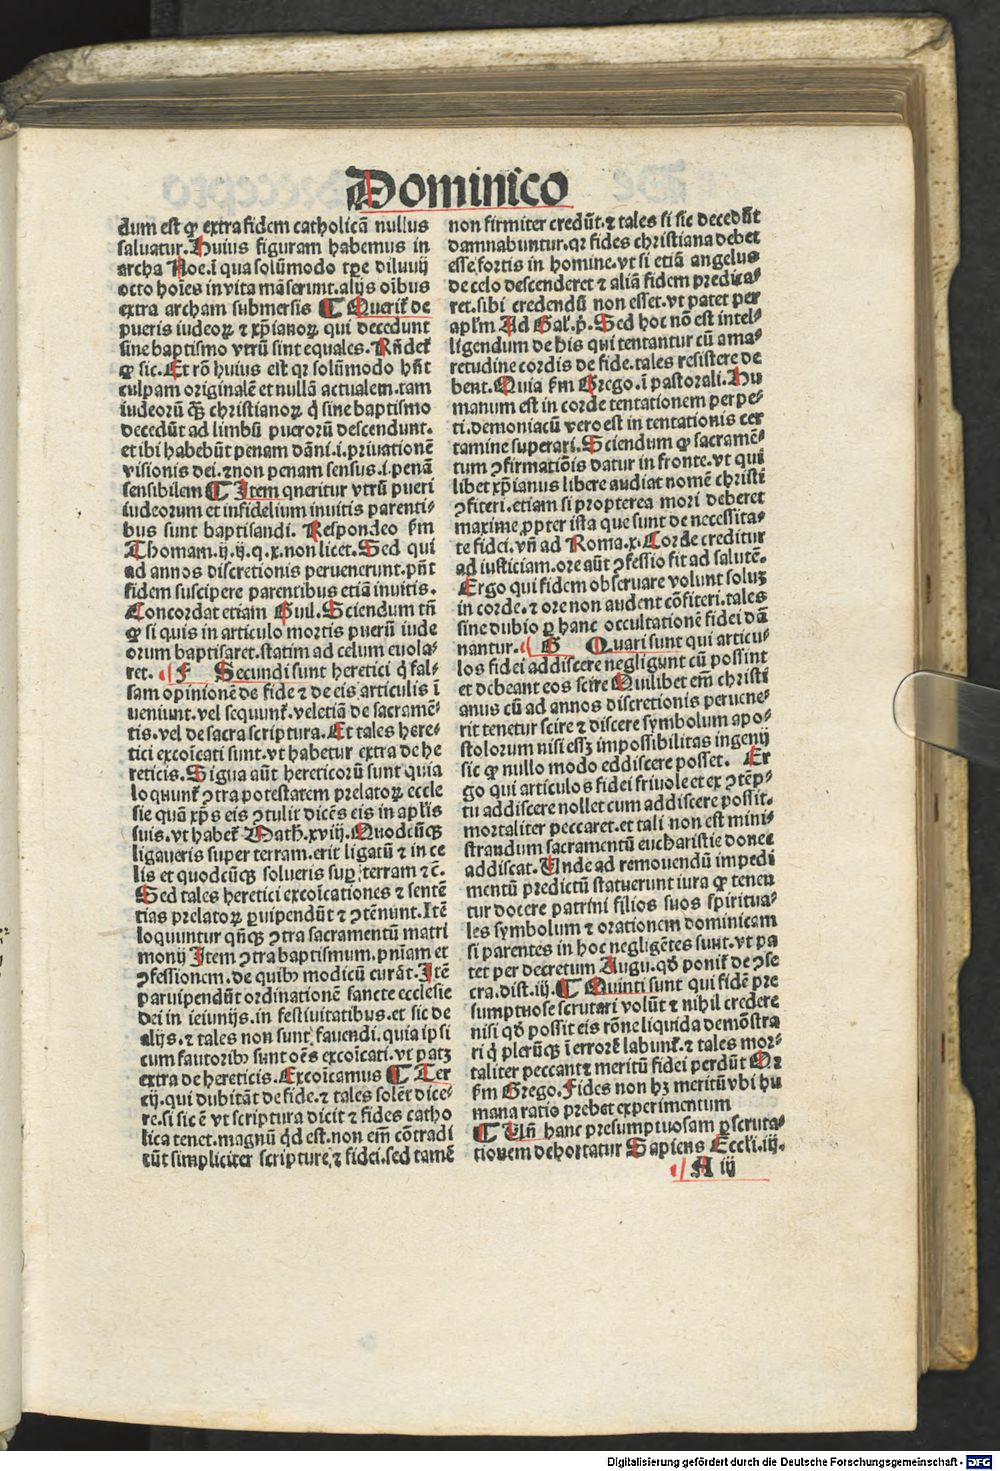 Dominico
dum est ꝙ extra fidem catholicā nullus
saluatur. Huius figuram habemus in
archa Noe. ī qua solūmodo tꝑe diluuij
octo hoīes in vita māserunt. alijs oībus
extra archam submersis ¶ Querit᷑ de
pueris iudeoꝝ ⁊ xp̄ianoꝝ qui decedunt
sine baptismo vtrū sint equales. Rn̄det᷑
ꝙ sic. Et rō huius est qꝛ solūmodo hn̄t
culpam originalē et nullā actualem. tam
iudeorū qꝫ̄ christianoꝝ q̇ sine baptismo
decedūt ad limbū puerorū descendunt.
et ibi habebūt penam dāni. i. priuationē
visionis dei. ⁊ non penam sensus. i. penā
sensibilem ¶ Item queritur vtrū pueri
iudeorum et infidelium inuitis parenti⸗
bus sunt baptisandi. Respondeo ẜm
Thomam. ij. ij. q. x. non licet. Sed qui
ad annos discretionis peruenerunt. pn̄t
fidem suscipere parentibus etiā inuitis.
Concordat etiam Guil. Sciendum tn̄
ꝙ si quis in articulo mortis puerū iude
orum baptisaret. statim ad celum euola⸗
ret. F Secundi sunt heretici q̇ fal⸗
sam opinionē de fide ⁊ de eis articulis ī
ueniunt. vel sequunt᷑. vel etiā de sacramē⸗
tis. vel de sacra scriptura. Et tales here⸗
tici excoīcati sunt. vt habetur extra de he
reticis. Signa aūt hereticorū sunt quia
loquunt᷑ ꝯtra potestatem prelatoꝝ eccle
sie quā xp̄s eis ꝯtulit dicēs eis in apl̄is
suis. vt habet᷑ Math. xviij. Quodcūqꝫ
ligaueris super terram. erit ligatū ⁊ in ce
lis et quodcūqꝫ solueris suꝑ terram ⁊ c̄.
Sed tales heretici excoīcationes ⁊ sentē
tias prelatoꝝ ꝑuipendūt ⁊ ꝯtēnunt. Itē
loquuntur qn̄qꝫ ꝯtra sacramentū matri
monij Item ꝯtra baptismum. pn̄iam et
ꝯfessionem. de quibꝰ modicū curāt. Itē
paruipendūt ordinationē sancte ecclesie
dei in ieiunijs. in festiuitatibus. et sic de
alijs. ⁊ tales non sunt fauendi. quia ipsi
cum fautoribꝰ sunt oēs excoīcati. vt patꝫ
extra de hereticis. Excoīcamus ¶ Ter
cij. qui dubitāt de fide. ⁊ tales solēt dice⸗
re. si sic ē vt scriptura dicit ⁊ fides catho
lica tenet. magnū q̇d est. non em̄ cōtradi
cūt simpliciter scripture, ⁊ fidei. sed tamē
non firmiter credūt. ⁊ tales si sic decedūt
damnabuntur. qꝛ fides christiana debet
esse fortis in homine. vt si etiā angelus
de celo descenderet ⁊ aliā fidem predica⸗
ret. sibi credendū non esset. vt patet per
apl̄m Ad Gal̄. p̄. Sed hoc nō est intel⸗
ligendum de his qui tentantur cū ama⸗
retudine cordis de fide. tales resistere de
bent. Quia ẜm Grego. ī pastorali. Hu
manum est in corde tentationem perpe⸗
ti. demoniacū vero est in tentationis cer
tamine superari. Sciendum ꝙ sacramē⸗
tum ꝯfirmatiōis datur in fronte. vt qui
libet xp̄ianus libere audiat nomē christi
ꝯfiteri. etiam si propterea mori deberet
maxime ꝓpter ista que sunt de necessita⸗
te fidei. vn̄ ad Roma. x. Corde creditur
ad iusticiam. ore aūt ꝯfessio fit ad salutē.
Ergo qui fidem obseruare volunt soluꝫ
in corde. ⁊ ore non audent cōfiteri. tales
sine dubio ꝑ hanc occultationē fidei dā
nantur. G Quarti sunt qui articu⸗
los fidei addiscere negligunt cū possint
et debeant eos scire Quilibet em̄ christi
anus cū ad annos discretionis peruene⸗
rit tenetur scire ⁊ discere symbolum apo⸗
stolorum nisi essꝫ impossibilitas ingenij
sic ꝙ nullo modo eddiscere posset. Er
go qui articulos fidei friuole et ex ꝯtēp⸗
tu addiscere nollet cum addiscere possit.
mortaliter peccaret. et tali non est mini⸗
strandum sacramentū eucharistie donec
addiscat. Unde ad remouendū impedi
mentū predictū statuerunt iura ꝙ tenen
tur docere patrini filios suos spiritua⸗
les symbolum ⁊ orationem dominicam
si parentes in hoc negligētes sunt. vt pa
tet per decretum Augu. qd̄ ponit᷑ de ꝯse
cra. dist. iij. ¶ Quinti sunt qui fidē pre
sumptuose scrutari volūt ⁊ nihil credere
nisi qd̄ possit eis rōne liquida demōstra
ri q̇ plerūqꝫ ī errorē labunt᷑. ⁊ tales mor⸗
taliter peccant ⁊ meritū fidei perdūt Qꝛ
ẜm Grego. Fides non hꝫ meritū vbi hu
mana ratio prebet experimentum
¶ Un̄ hanc presumptuosam ꝑscruta⸗
tionem dehortatur Sapiens Eccl̄i. iij.
A iij
Digitalisierung gefördert durch die Deutsche Forschungsgemeinschaft - DFG